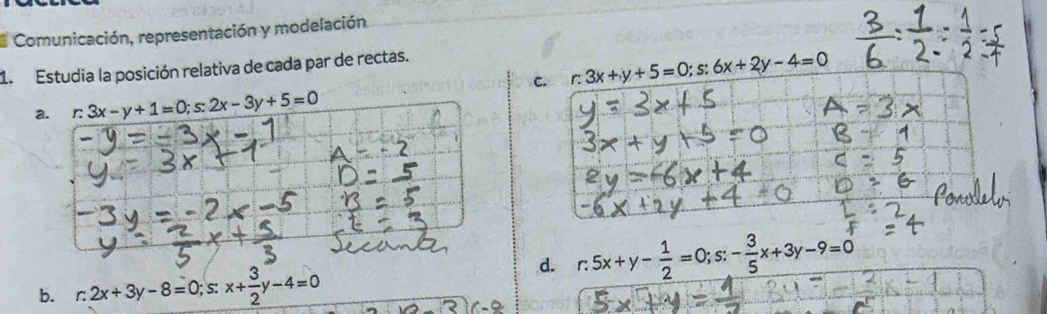 Comunicación, representación y modelación
1. Estudia la posición relativa de cada par de rectas.
a. r: 3x-y+1=0; s: 2x-3y+5=0
-y = -3x-1
y = 3x+1
-3y = -2x-5
y = 2/5 x + 5/3
A = -2
D = 5
B = 5
E = 3
Secantes
b. r: 2x+3y-8=0; s: x+3/2 y-4=0
c. r: 3x+y+5=0; s: 6x+2y-4=0
3/6 = 1/2 = 1/2
y = 3x+5
3x+y+5=0
2y = -6x+4
-6x+2y+4=0
A = 3x
B = 1
C = 5
D = 6
E = 2
F = 4
d. r: 5x+y-1/2=0; s: -3/5 x+3y-9=0
5x+y=1/2